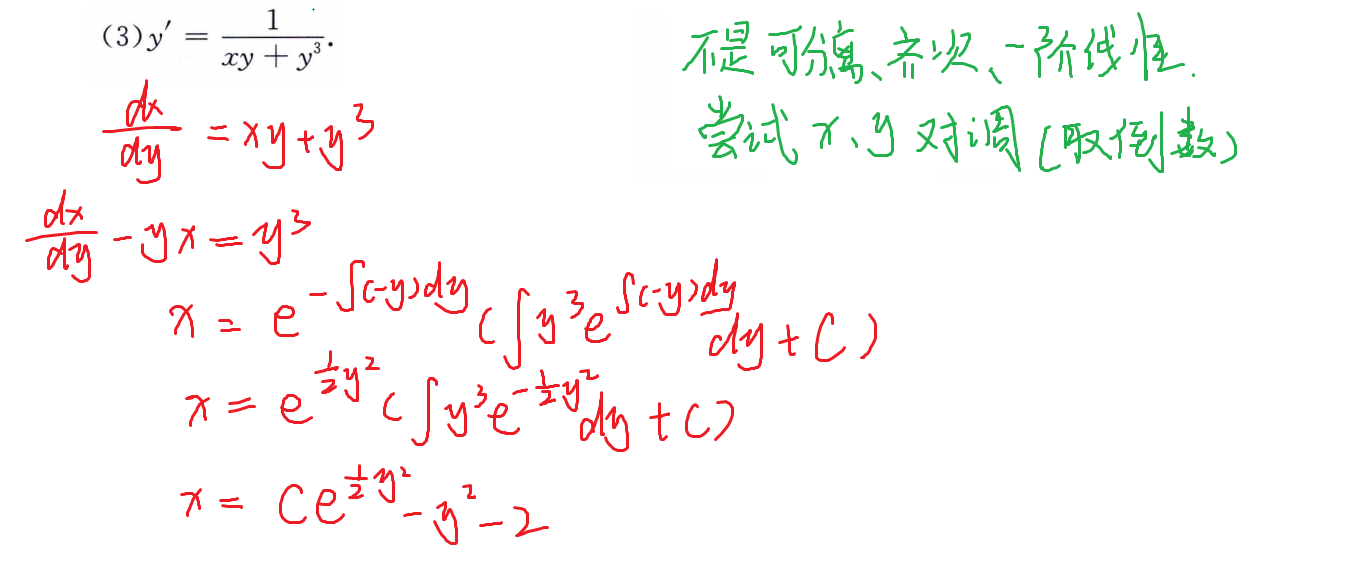 (3) y′ = 1/(xy + y³).
不是可分离、齐次、一阶线性.
尝试 x、y 对调(取倒数)
dx/dy = xy + y³
dx/dy - yx = y³
x = e^(-∫(-y)dy) (∫y³e^(∫(-y)dy) dy + C)
x = e^(½y²) (∫y³e^(-½y²)dy + C)
x = Ce^(½y²) - y² - 2